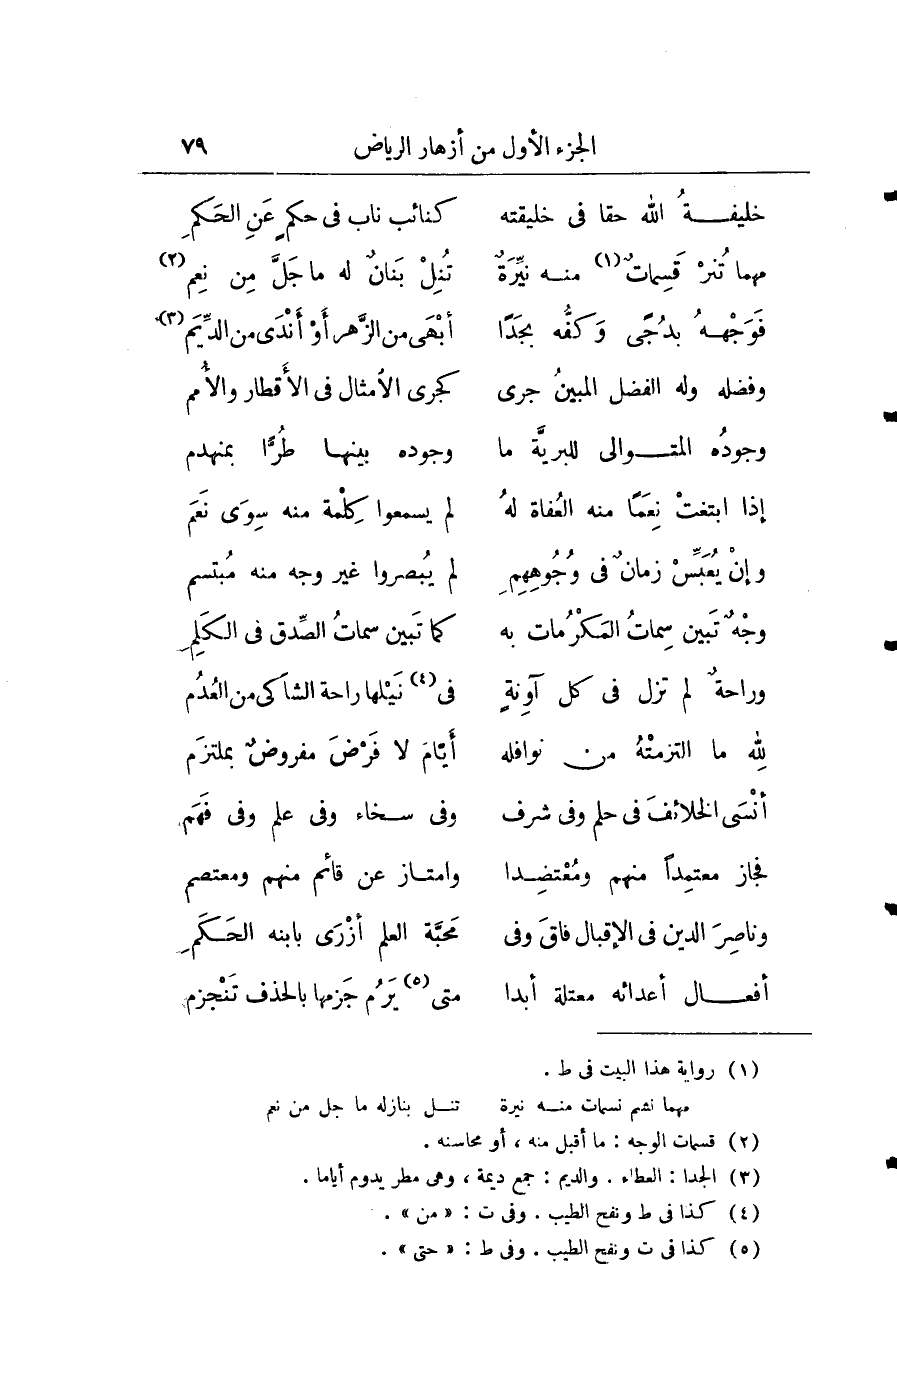 الجزء الأول من أزهار الرياض ٧٩
خليفةُ الله حقا فى خليقته كنائب ناب فى حكمٍ عَنِ الحَكَمِ
مهما تُنرْ قَسِماتٌ (١) منه نيِّرَةٌ تُنِلْ بَنانٌ له ما جَلَّ مِن نِعم (٢)
فَوَجْهه بدُجًى وَكفُّه بجَدًا أبْهَى من الزَّهر أوْ أنْدَى من الدِّيَم (٣)
وفضله وله الفضل المبينُ جرى كجرى الأمثال فى الأقطار والأُمم
وجودُه المتوالى للبريَّة ما وجوده بينها طُرًّا بمنهدم
إذا ابتغتْ نِعَمًا منه العُفاة لهُ لم يسمعوا كِلْمة منه سِوَى نَعَم
وإنْ يُعَبِّسْ زمانٌ فى وُجُوهِهِمِ لم يُبصروا غير وجه منه مُبتسم
وجْهٌ تَبين سِماتُ المَكْرُمات به كما تَبين سماتُ الصِّدق فى الكَلِمِ
وراحةٌ لم تزل فى كل آوِنةٍ فى (٤) نَيْلها راحة الشاكى من العُدُم
لِلّه ما التزمتْهُ من نوافله أيّامَ لا فَرْضَ مفروضٌ بملتزَم
أنْسَى الخلائفَ فى حلم وفى شرف وفى سخاء وفى علم وفى فَهَم
فجاز معتمِداً منهم ومُعْتضِدا وامتاز عن قائم منهم ومعتصم
وناصِرَ الدين فى الإقبال فاقَ وفى مَحبَّة العلم أزْرَى بابنه الحَكَمِ
أفعال أعدائه معتلة أبدا متى (٥) يَرُم جَزمها بالحذف تَنْجزم
(١) رواية هذا البيت فى ط .
مهما نشم نسمات منه نيرة تنل بنازله ما جل من نعم
(٢) قسمات الوجه : ما أقبل منه ، أو محاسنه .
(٣) الجدا : العطاء . والديم : جمع ديمة ، وهى مطر يدوم أياما .
(٤) كذا فى ط ونفح الطيب . وفى ت : « من » .
(٥) كذا فى ت ونفح الطيب . وفى ط : « حتى » .